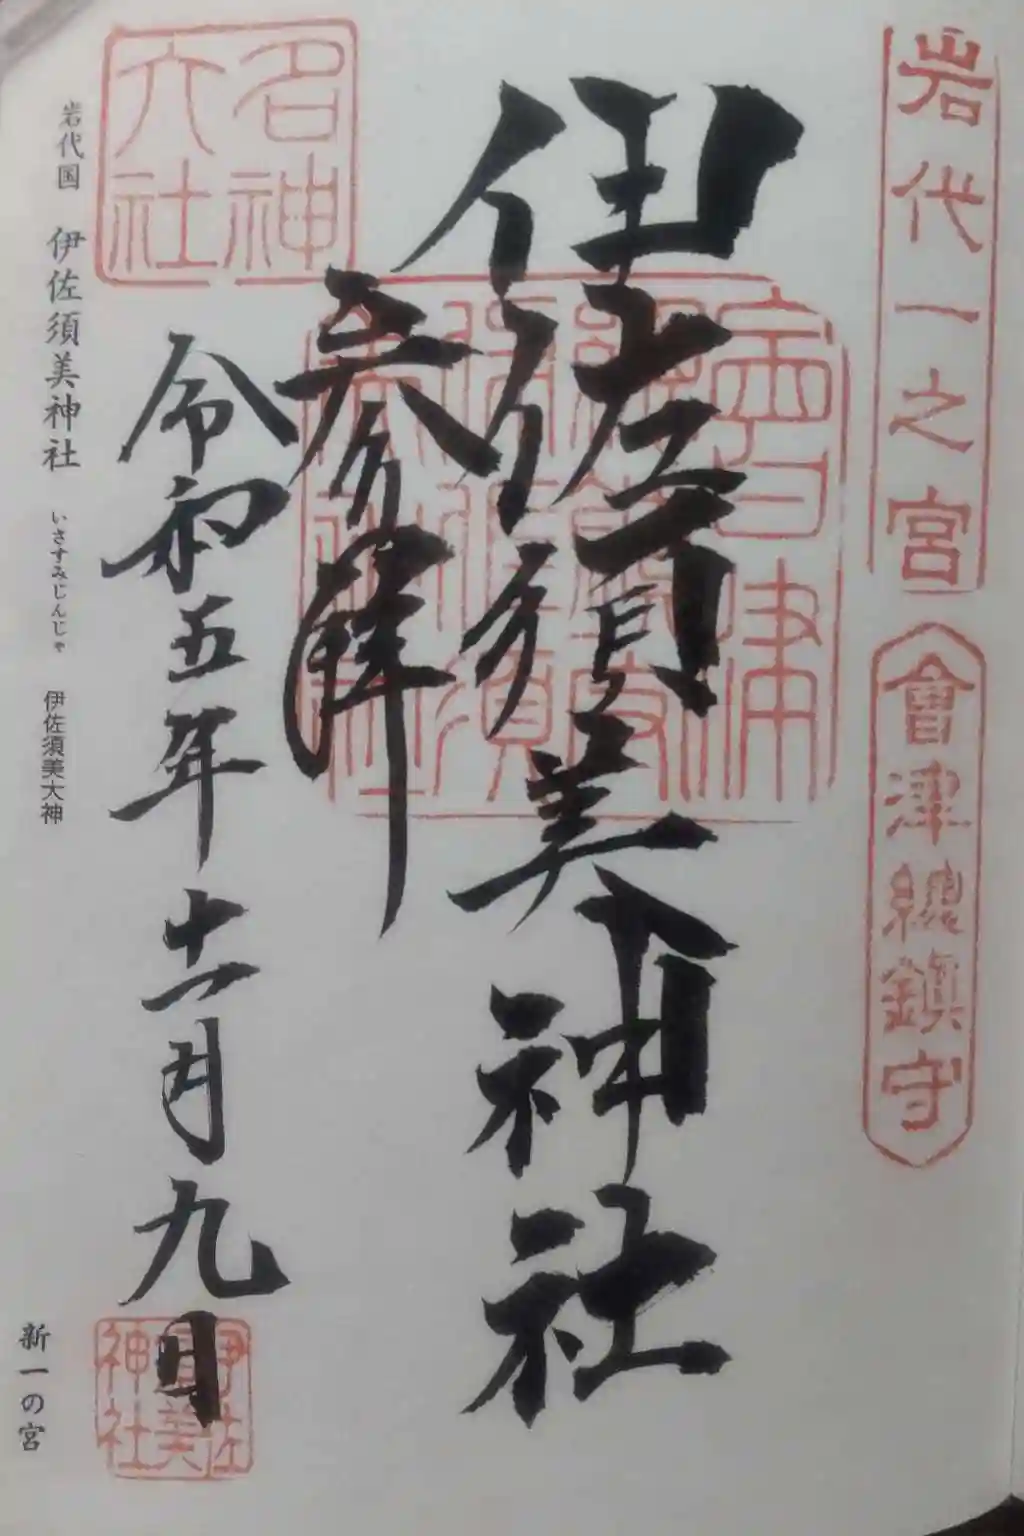 岩代一之宮
會津總鎮守
伊佐須美神社
参拝
名神
大社
令和五年十一月九日
伊佐
須美
神社
岩代国 伊佐須美神社 いさすみじんじゃ 伊佐須美大神
新一の宮